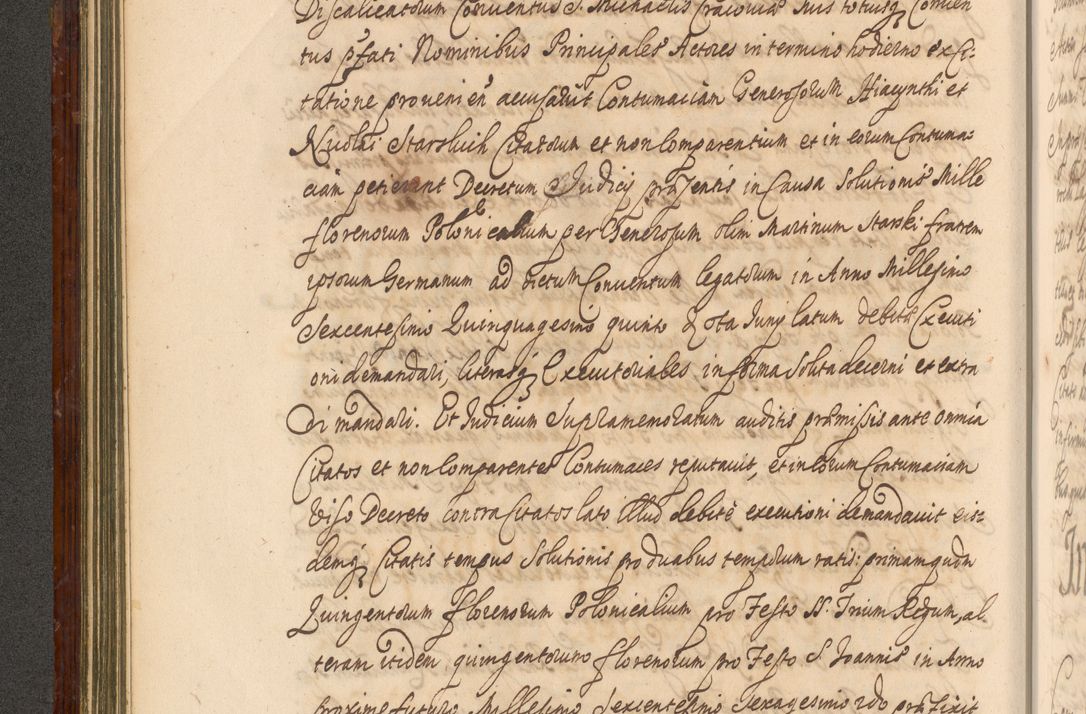 Discalceatorum Conventus S. Michaelis Cracoviae suis totiusq Conven
tus pfati Nominibus Principales Actores in termino hodierno ex Ci-
tatione provenien accusarūt Contumaciam Generosorum Hiacynthi et
Nicolai Starskich Citatorum et non Comparentium et in eorum Contuma-
ciam petierunt Decretum Judicij praesentis in Causa Solutionis Mille
florenorum Polonicalium per Generosum olim Martinum Starski fratrem
ipsorum Germanum ad dictum Conventum legatorum in Anno Millesimo
Sexcentesimo Quinquagesimo quinto Junij latum debitae Executi
oni demandari, literasq Executoriales in forma Solita decerni et extra
di mandari. Et Judicium Supramemoratum auditis praemissis ante omnia
Citatos et non Comparentes Contumaces reputavit, et in eorum Contumaciam
Viso Decreto contra Citatos lato illud debitè executioni demandavit eis-
demq Citatis tempus Solutionis pro duabus temporum ratis: primam quidem
Quingentorum florenorum Polonicalium pro Festo SS. Trium Regum, al
teram itidem quingentorum florenorum pro Festo S. Joannis in Anno
proxime futuro Millesimo Sexcentesimo Sexagesimo 2do praefixit